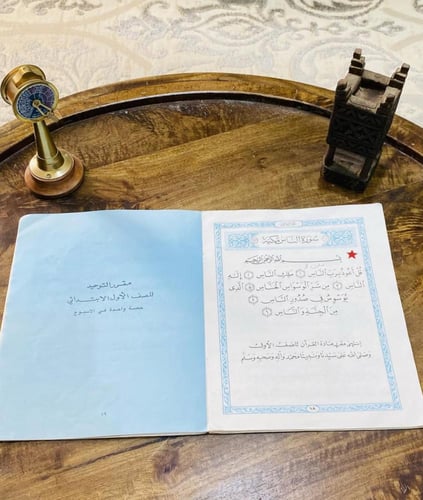 سورة الناس مكية
بسم الله الرحمن الرحيم
قُلْ أَعُوذُ بِرَبِّ النَّاسِ ١ مَلِكِ النَّاسِ ٢ إِلَهِ
النَّاسِ ٣ مِن شَرِّ الْوَسْوَاسِ الْخَنَّاسِ ٤ الَّذِي
يُوَسْوِسُ فِي صُدُورِ النَّاسِ ٥
مِنَ الْجِنَّةِ وَالنَّاسِ ٦
انتهى مقرر مادة القرآن للصف الأول
وصلى الله على سيدنا ونبينا محمد وآله وصحبه وسلم
١٨
مقرر التوحيد
للصف الأول الابتدائي
حصة واحدة في الأسبوع
١٩